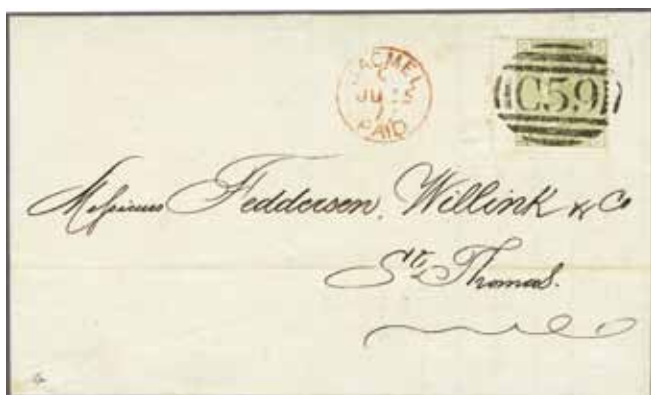 JACMEL
C
JU 15
PAID
C59
Messieurs Feddersen, Willink & Co
St. Thomas.